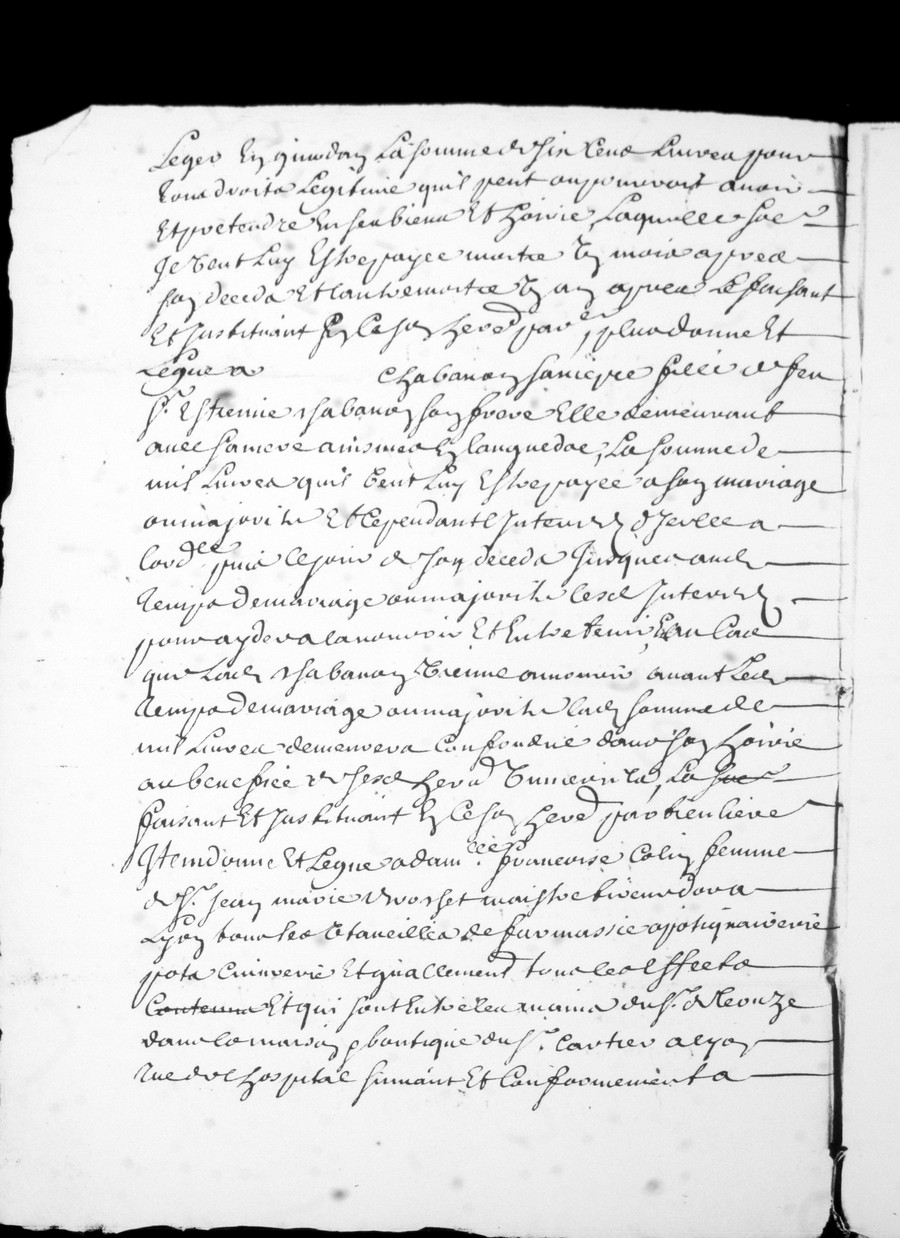 Leger En guerdon La somme de six Cent Livres pour
tous droits Legitime quil peut ou pourroit avoir
Et pretendre En ses biens Et hoirie, Laquelle so.e
Je Veut Luy Estre payee moitie Un mois apres
son deceds Et lautre moitie Un an apres Le faisant
Et Instituant En Ce son hered par.er, plus donne Et
Legue a Chabanon sa niepce fille de feu
Sr. Estienne chabanon son frere Elle demeurant
avec sa mere a nismes En languedoc, La somme de
mil Livres quil Veut Luy Estre payee a son mariage
ou majorité Et Cependant l'Interest d'Icelle a
lord.ee puis le jour de son deceds Jusques aud
temps de mariage ou majorité lesd Interest
pour ayder a la nourrir Et Entretenir, Et au Cas
que Lad chabanon Vienne a mourir avant Led
temps de mariage ou majorité lad somme de
mil Livres demeurera Confondue dans son hoirie
au benefice de sesd hered Universels, La so.e
faisant Et Instituant En Ce son hered particuliere
Item donne Et Legue a dam.elle francoise Colin femme
de Sr. Jean marie maistre a
Lyon tous les Utancilles de farmassie apotiquairerie
pots Cuivrerie Et generallement tous les Effects
Contenus Et qui sont Entre les mains du Sr. de Leouze
dans la maison & boutique du Sr. Cartier a Lyon
rue de Lhospital suivant Et Conformement a